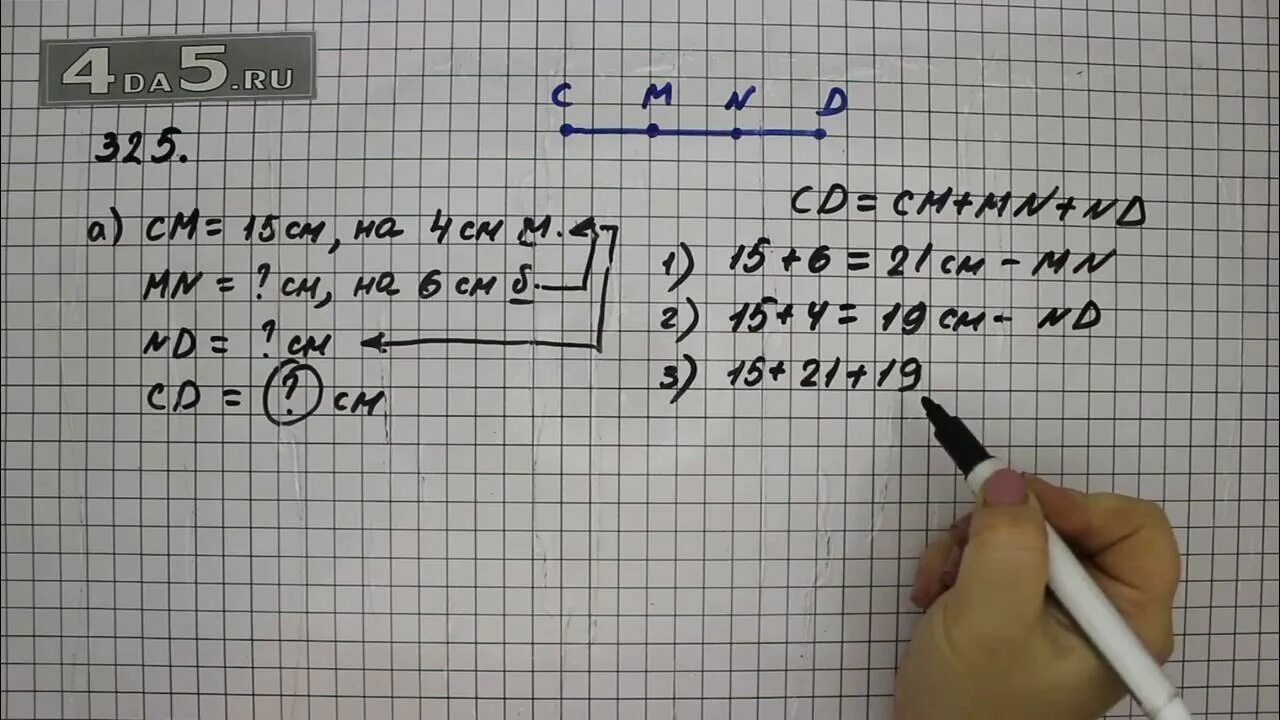 4DA5.RU
C M N D
325.
CD = CM + MN + ND
а) CM = 15 см, на 4 см м.
MN = ? см, на 6 см б.
ND = ? см
CD = ? см
1) 15 + 6 = 21 см - MN
2) 15 + 4 = 19 см - ND
3) 15 + 21 + 19